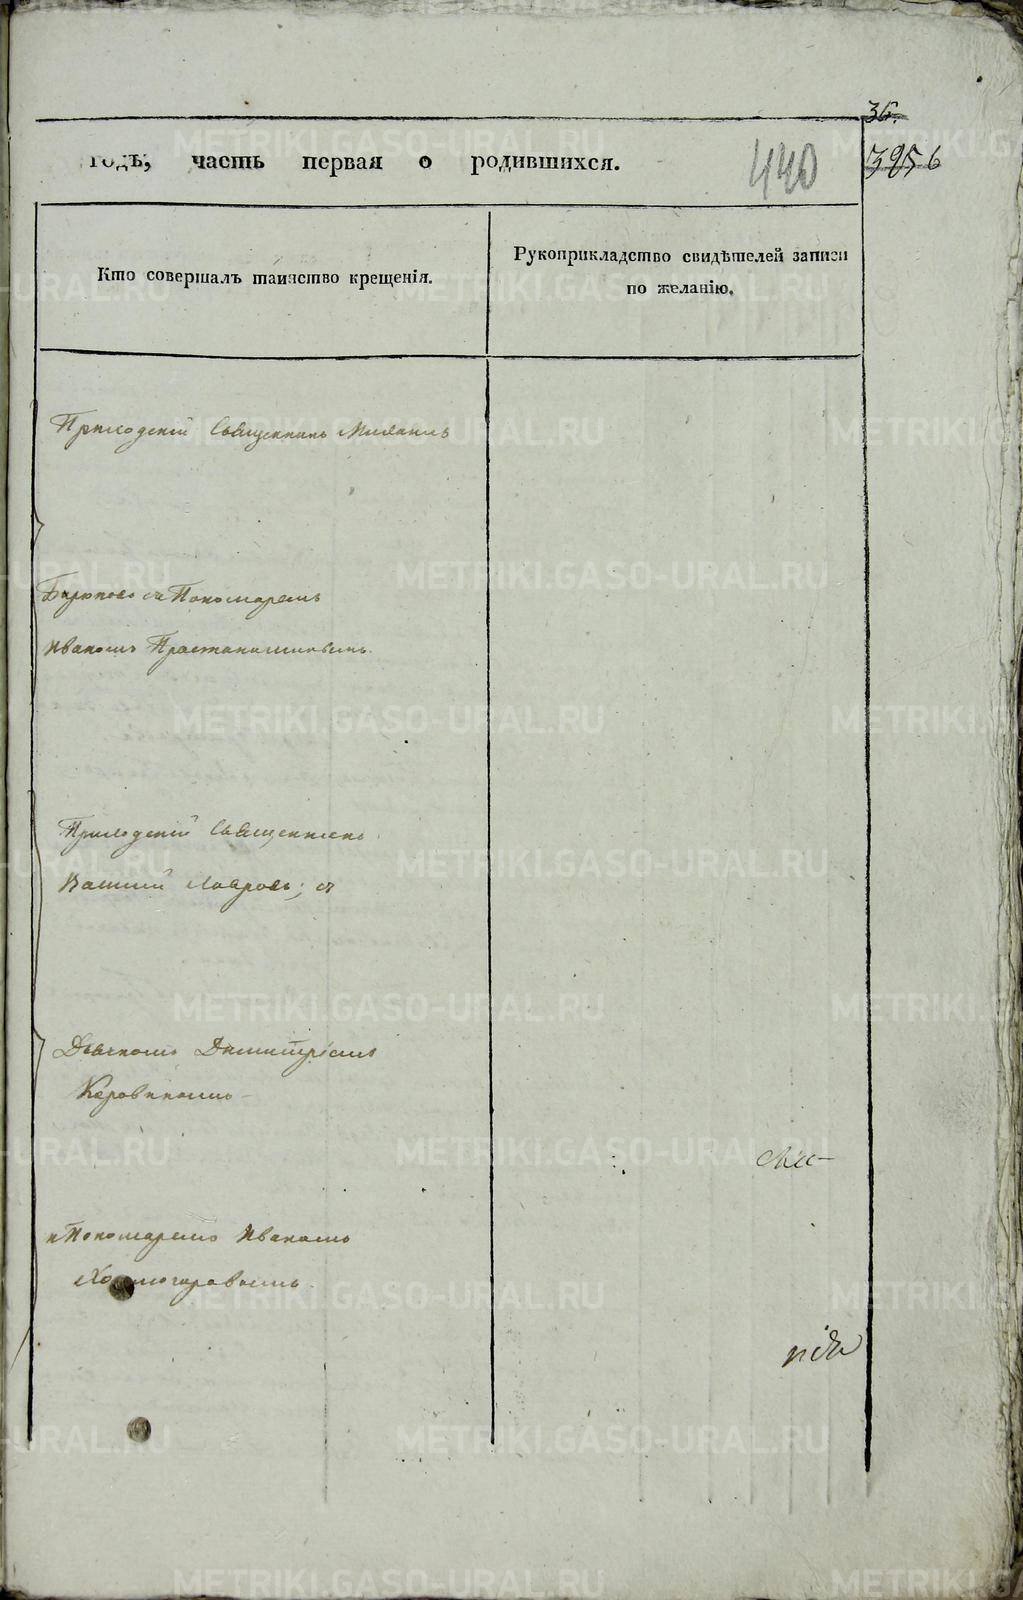 36.
годъ, часть первая о родившихся.
440
3956
Кто совершалъ таинство крещенія.
Рукоприкладство свидѣтелей записи
по желанію.
Приходскій Священникъ Михаилъ
Бирюковъ съ Пономаремъ
Иваномъ
Приходскій Священникъ
Василій Лавровъ; съ
Дьячкомъ Димитріемъ
Коровинымъ
и Пономаремъ Иваномъ
Холмогоровымъ.
METRIKI.GASO-URAL.RU